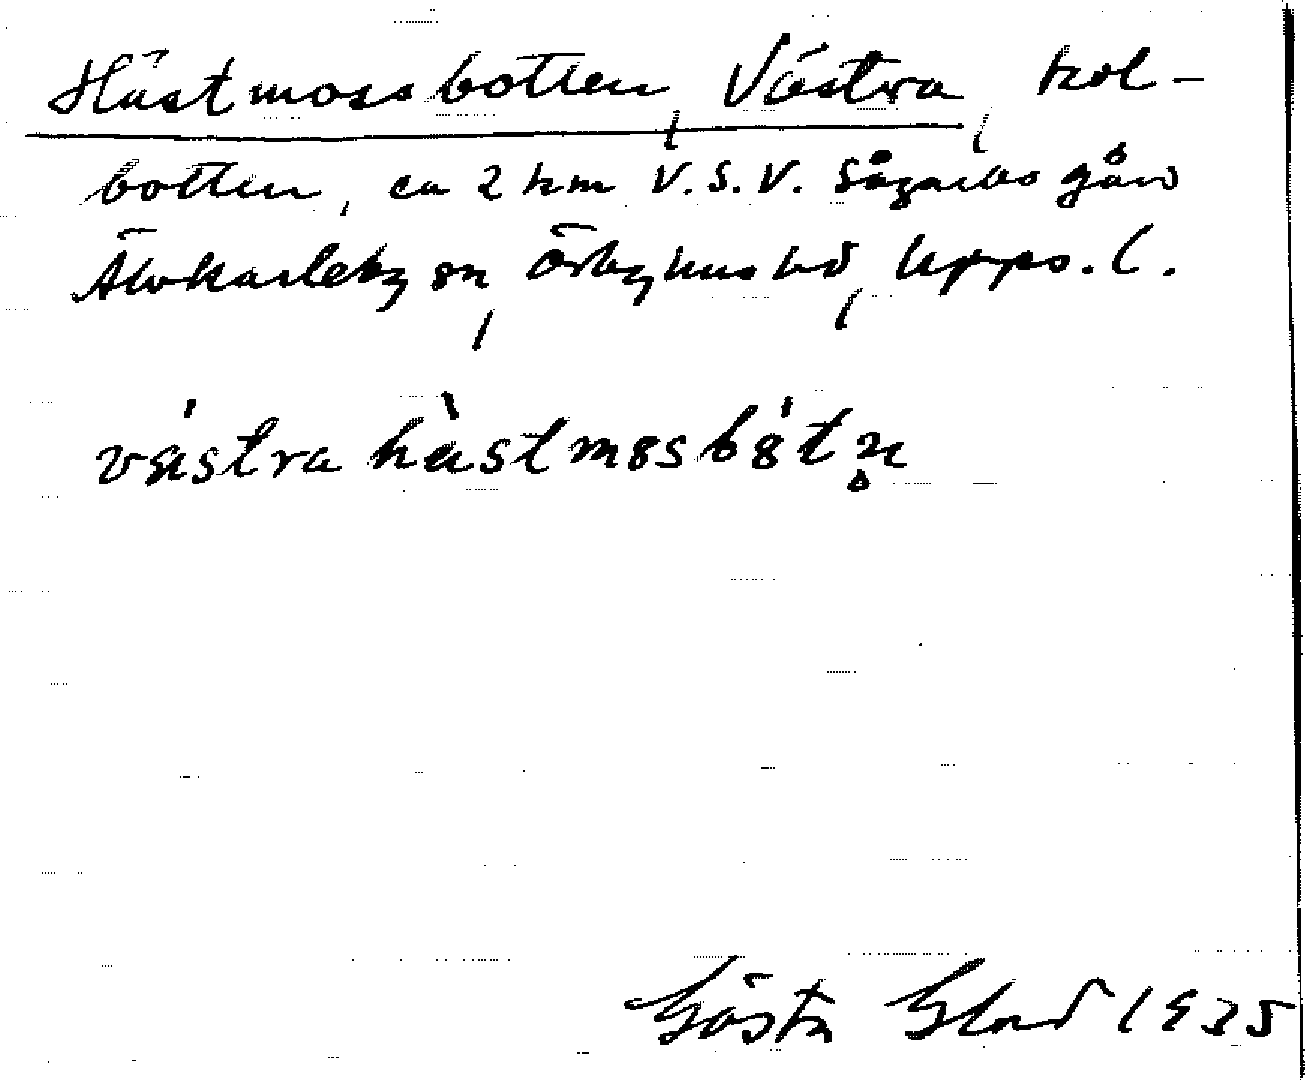 Hästmossbotten, Västra, kol-
botten, ca 2 km V.S.V. Sågarbo gård
Älvkarleby sn, Örbyhus hd, Upps. l.
västra hästmosbotn
Gösta Glad 1935